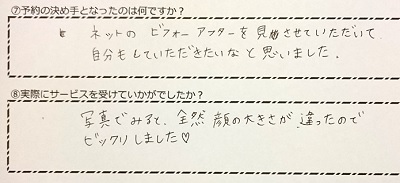 ⑦予約の決め手となったのは何ですか？
ネットの ビフォーアフターを見させていただいて
自分もしていただきたいなと思いました.
⑧実際にサービスを受けていかがでしたか？
写真でみると、全然 顔の大きさが 違ったので
ビックリしました♡